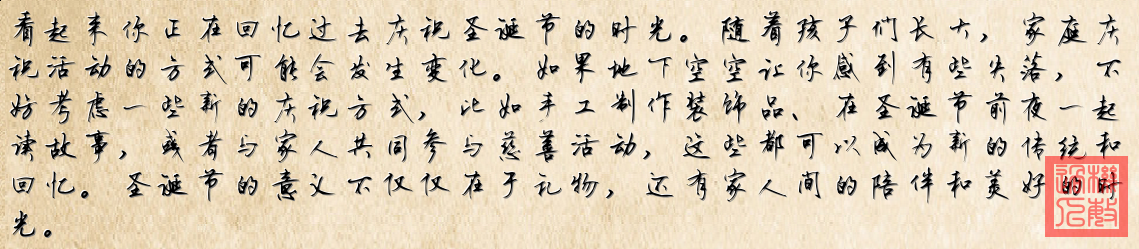 看起来你正在回忆过去庆祝圣诞节的时光。随着孩子们长大，家庭庆
祝活动的方式可能会发生变化。如果地下空空让你感到有些失落，不
妨考虑一些新的庆祝方式，比如手工制作装饰品、在圣诞节前夜一起
读故事，或者与家人共同参与慈善活动，这些都可以成为新的传统和
回忆。圣诞节的意义不仅仅在于礼物，还有家人间的陪伴和美好的时
光。